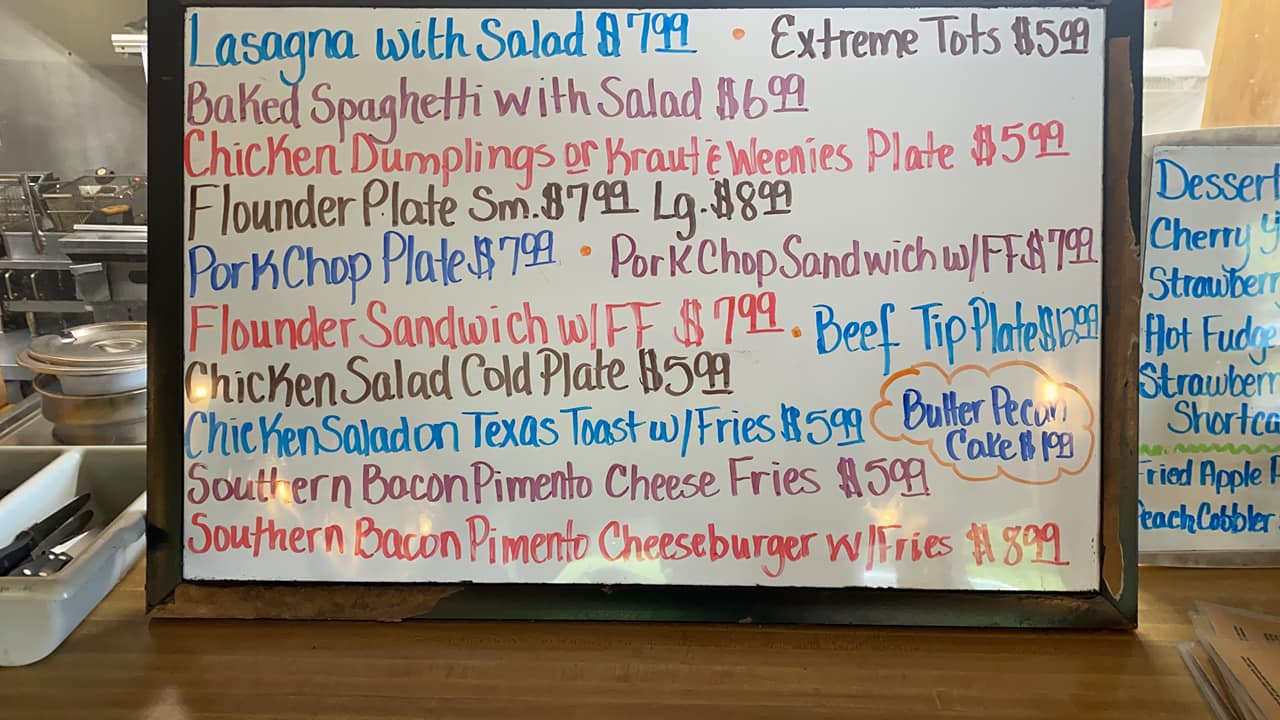 Lasagna with Salad $7.99 • Extreme Tots $5.99
Baked Spaghetti with Salad $6.99
Chicken Dumplings or Kraut & Weenies Plate $5.99
Flounder Plate Sm. $7.99 Lg. $8.99
Pork Chop Plate $7.99 • Pork Chop Sandwich w/FF $7.99
Flounder Sandwich w/FF $7.99 • Beef Tip Plate $12.99
Chicken Salad Cold Plate $5.99
Chicken Salad on Texas Toast w/Fries $5.99
Butter Pecan
Cake $1.99
Southern Bacon Pimento Cheese Fries $5.99
Southern Bacon Pimento Cheeseburger w/Fries $8.99
Dessert
Cherry Y
Strawberr
Hot Fudge
Strawberr
Shortca
Fried Apple P
Peach Cobbler